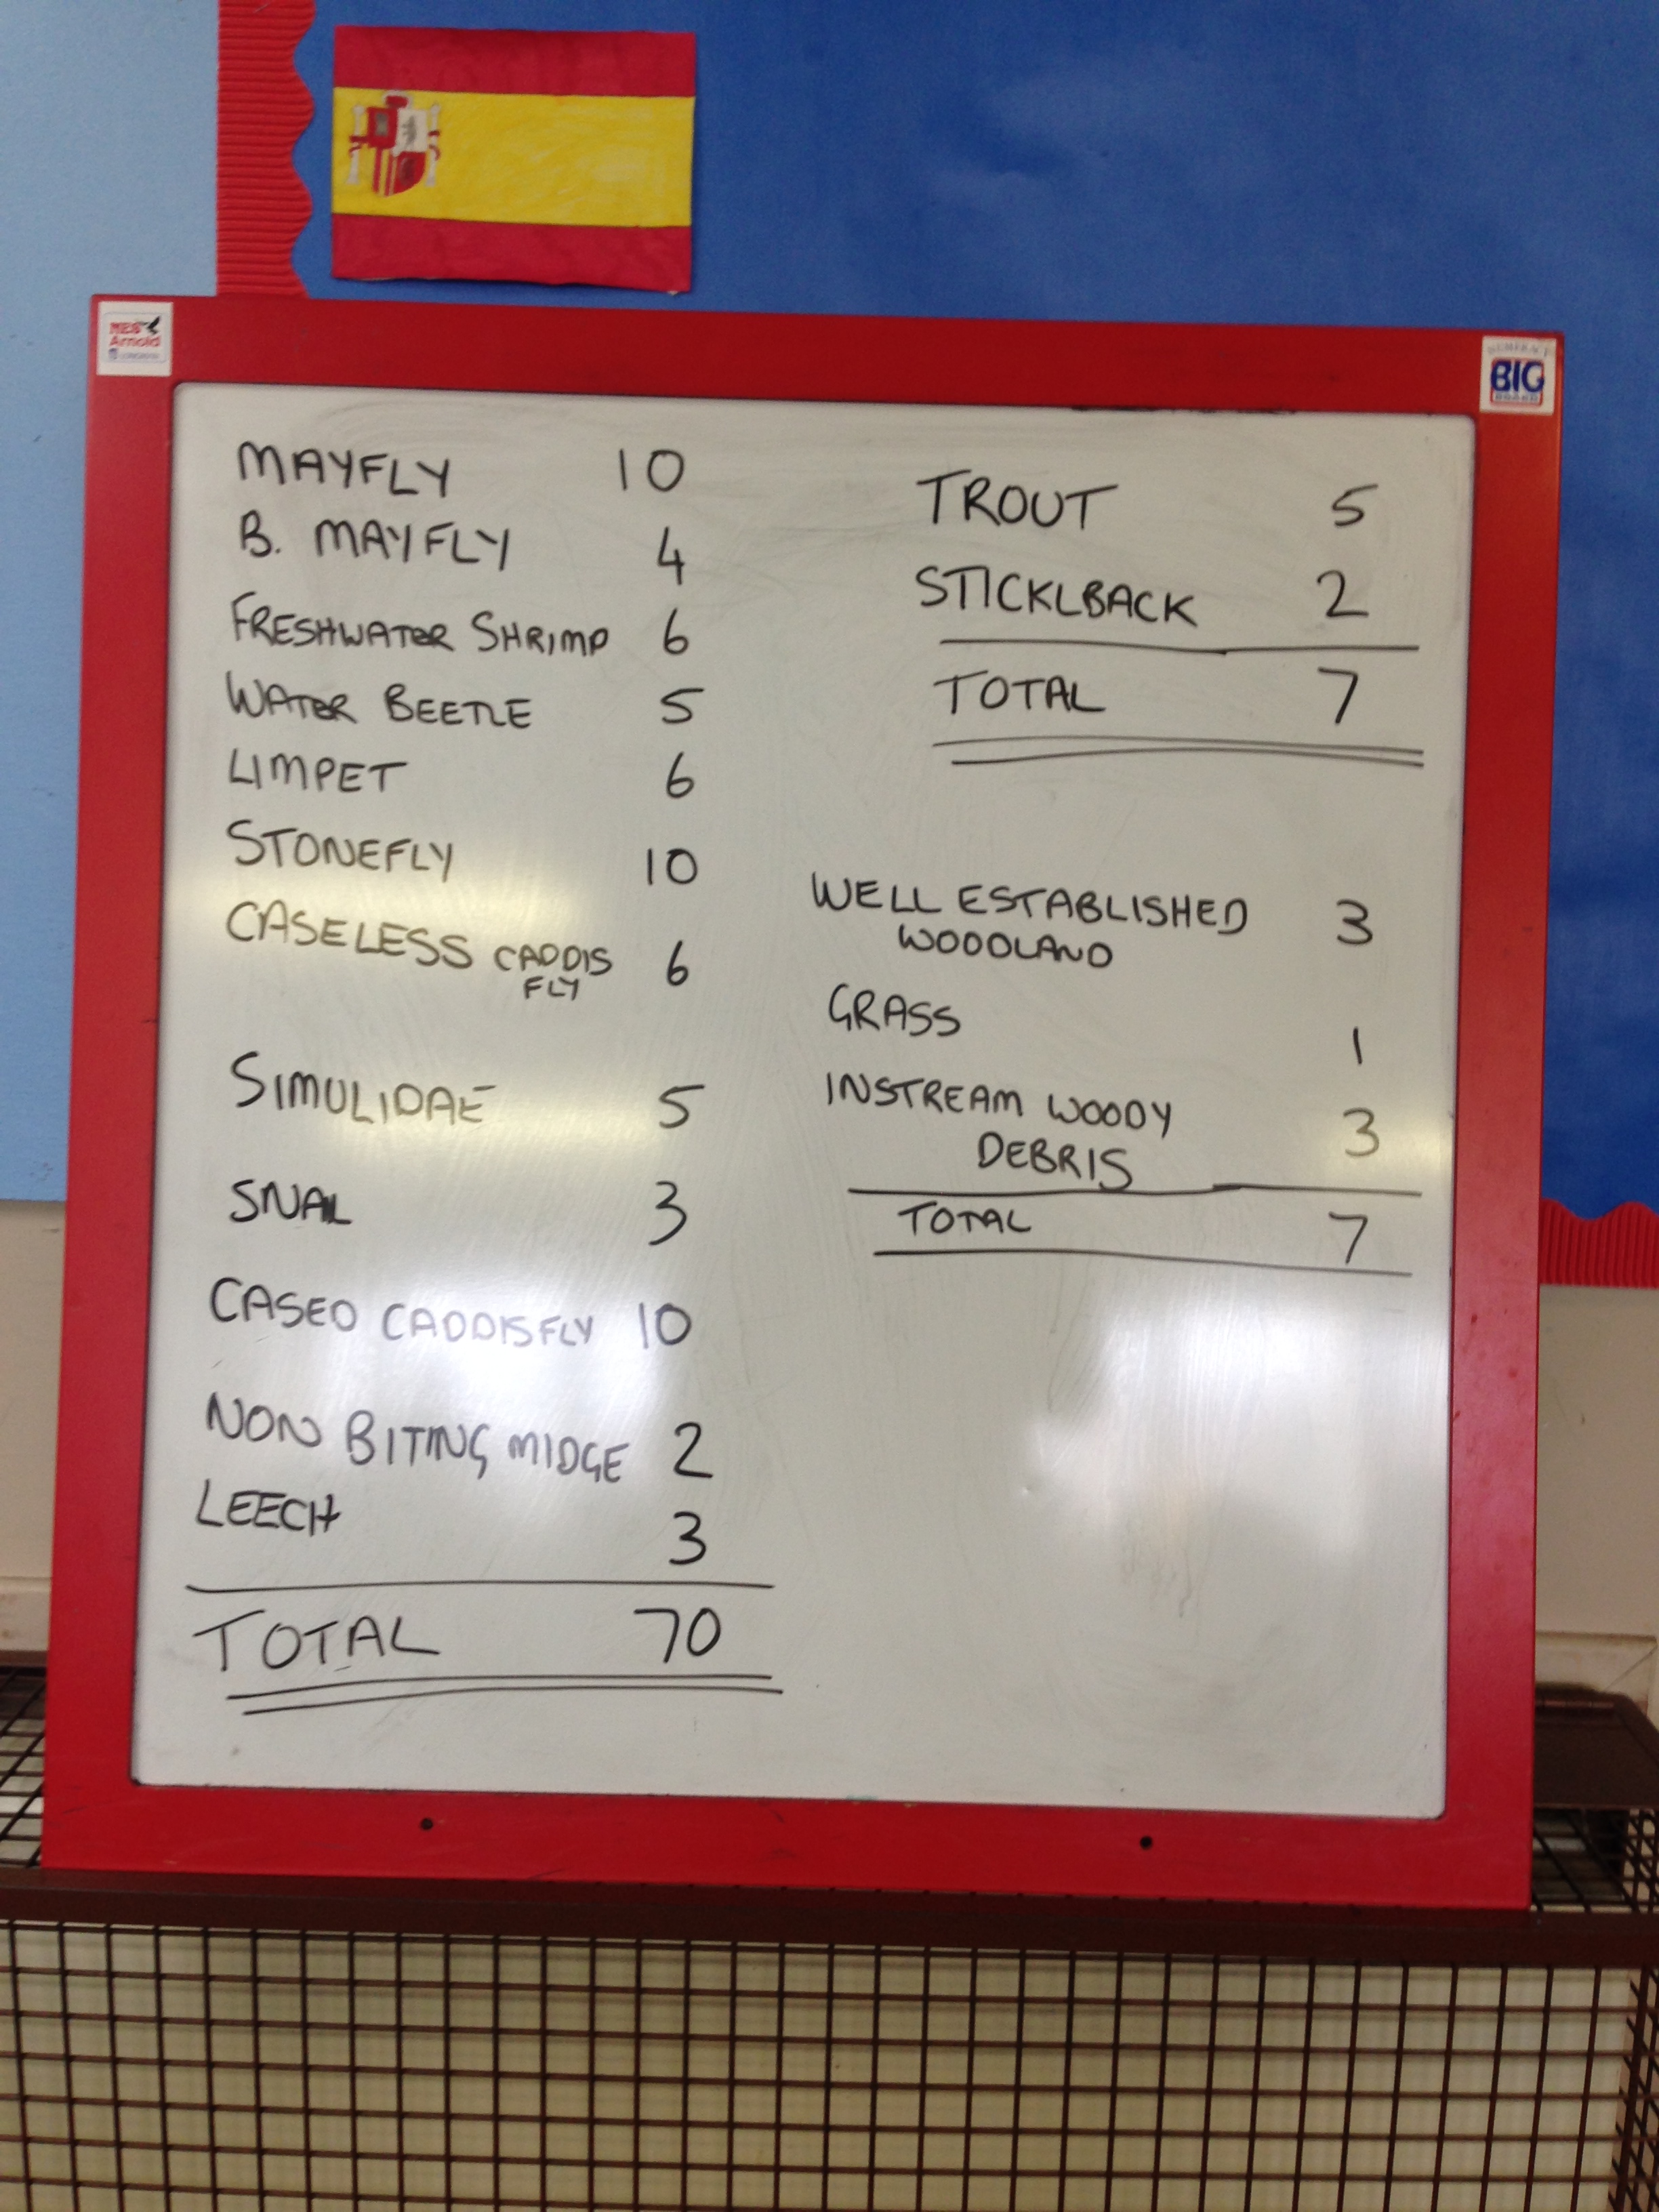 MES
Arnold
BIG
BOARD
MAYFLY 10
B. MAYFLY 4
FRESHWATER SHRIMP 6
WATER BEETLE 5
LIMPET 6
STONEFLY 10
CASELESS CADDIS 6
FLY
SIMULIDAE 5
SNAIL 3
CASED CADDISFLY 10
NON BITING MIDGE 2
LEECH 3
TOTAL 70
TROUT 5
STICKLBACK 2
TOTAL 7
WELL ESTABLISHED 3
WOODLAND
GRASS 1
INSTREAM WOODY 3
DEBRIS
TOTAL 7